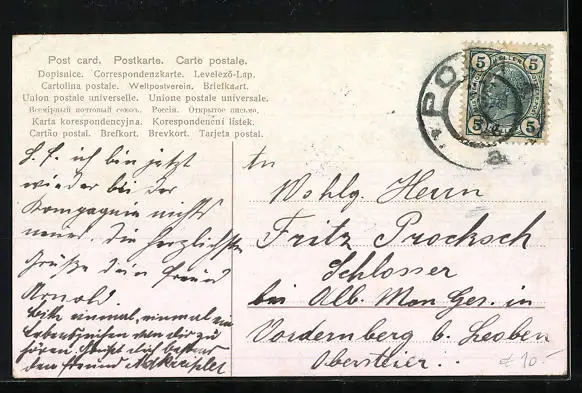 Post card. Postkarte. Carte postale.
Dopisnice. Correspondenzkarte. Levelező-Lap.
Cartolina postale. Weltpostverein. Briefkaart.
Union postale universelle. Unione postale universale.
Всемірный почтовый союзъ. Россія. Открытое письмо.
Karta korespondencyjna. Korespondenční listek.
Cartão postal. Brefkort. Brevkort. Tarjeta postal.
5 5
5 5
PO
a
L. F. ich bin jetzt
wieder bei der
Kompagnie nichts
neues. die herzlichsten
Grüße dein Freund
Arnold.
einmal, einmal ein
Lebenszeichen von dir zu
hören.
den Freund
An
Wohlg. Herrn
Fritz Procksch
Schlosser
bei Alb. Mon Ges. in
Vordernberg b. Leoben
Obersteier..
10.-